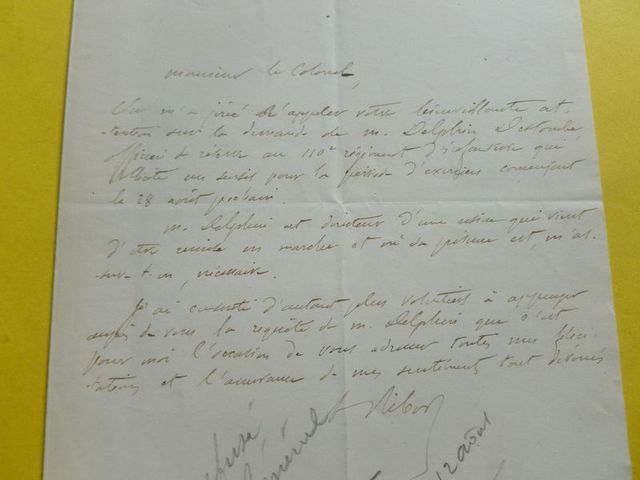 Monsieur le Colonel,
On m'a prié d'appeler votre bienveillante at-
tention sur la demande de M. Delphin
officier de réserve au 110e régiment d'infanterie qui
sollicite un sursis pour la période d'exercices commençant
le 28 août prochain.
M. Delphin est directeur d'une usine qui vient
d'être remise en marche et où sa présence est, m'as-
sure-t-on, nécessaire.
J'ai consenti d'autant plus volontiers à appuyer
auprès de vous la requête de M. Delphin que c'est
pour moi l'occasion de vous adresser toutes mes félici-
tations et l'assurance de mes sentiments tout dévoués
Ribot
Refusé
Général
12 août